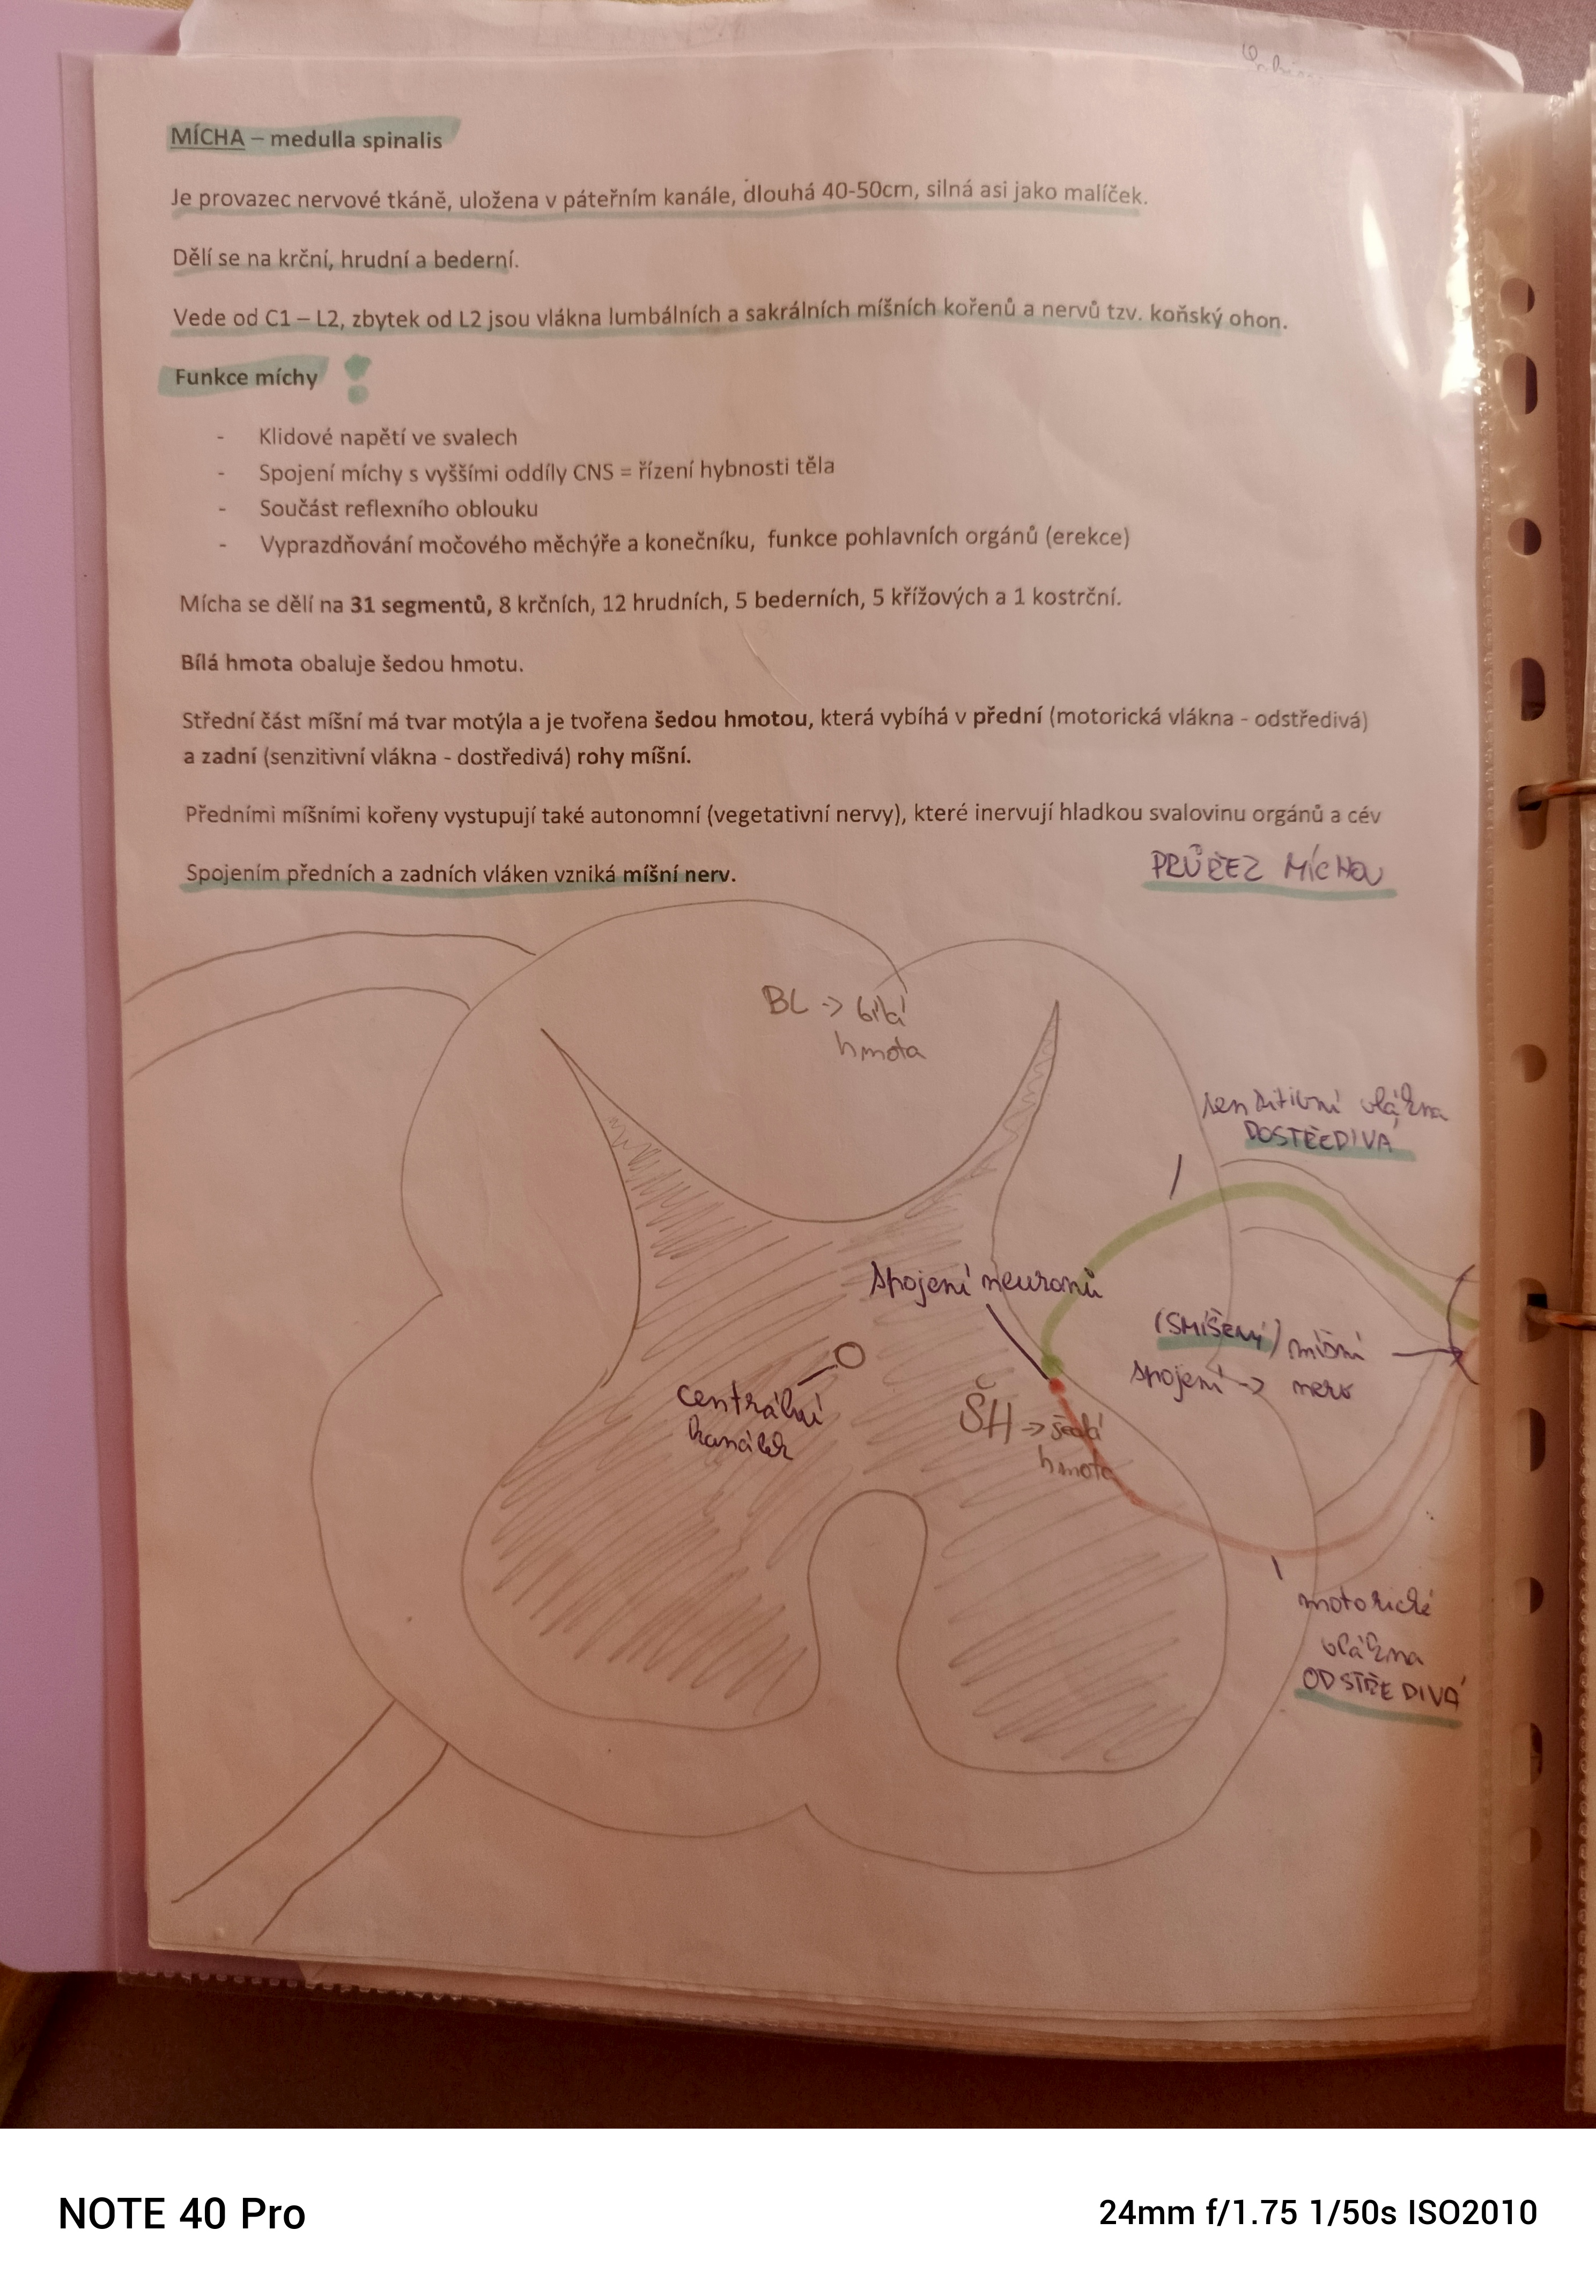 MÍCHA – medulla spinalis
Je provazec nervové tkáně, uložena v páteřním kanále, dlouhá 40-50cm, silná asi jako malíček.
Dělí se na krční, hrudní a bederní.
Vede od C1 – L2, zbytek od L2 jsou vlákna lumbálních a sakrálních míšních kořenů a nervů tzv. koňský ohon.
Funkce míchy
- Klidové napětí ve svalech
- Spojení míchy s vyššími oddíly CNS = řízení hybnosti těla
- Součást reflexního oblouku
- Vyprazdňování močového měchýře a konečníku, funkce pohlavních orgánů (erekce)
Mícha se dělí na 31 segmentů, 8 krčních, 12 hrudních, 5 bederních, 5 křížových a 1 kostrční.
Bílá hmota obaluje šedou hmotu.
Střední část míšní má tvar motýla a je tvořena šedou hmotou, která vybíhá v přední (motorická vlákna - odstředivá)
a zadní (senzitivní vlákna - dostředivá) rohy míšní.
Předními míšními kořeny vystupují také autonomní (vegetativní nervy), které inervují hladkou svalovinu orgánů a cév
Spojením předních a zadních vláken vzniká míšní nerv.
PRŮŘEZ MÍCHOU
BL -> bílá
hmota
senzitivní vlákna
DOSTŘEDIVÁ
spojení neuronů
(SMÍŠENÝ) míšní
spojení -> nerv
centrální
kanálek
ŠH -> šedá
hmota
motorické
vlákna
ODSTŘEDIVÁ
NOTE 40 Pro
24mm f/1.75 1/50s ISO2010